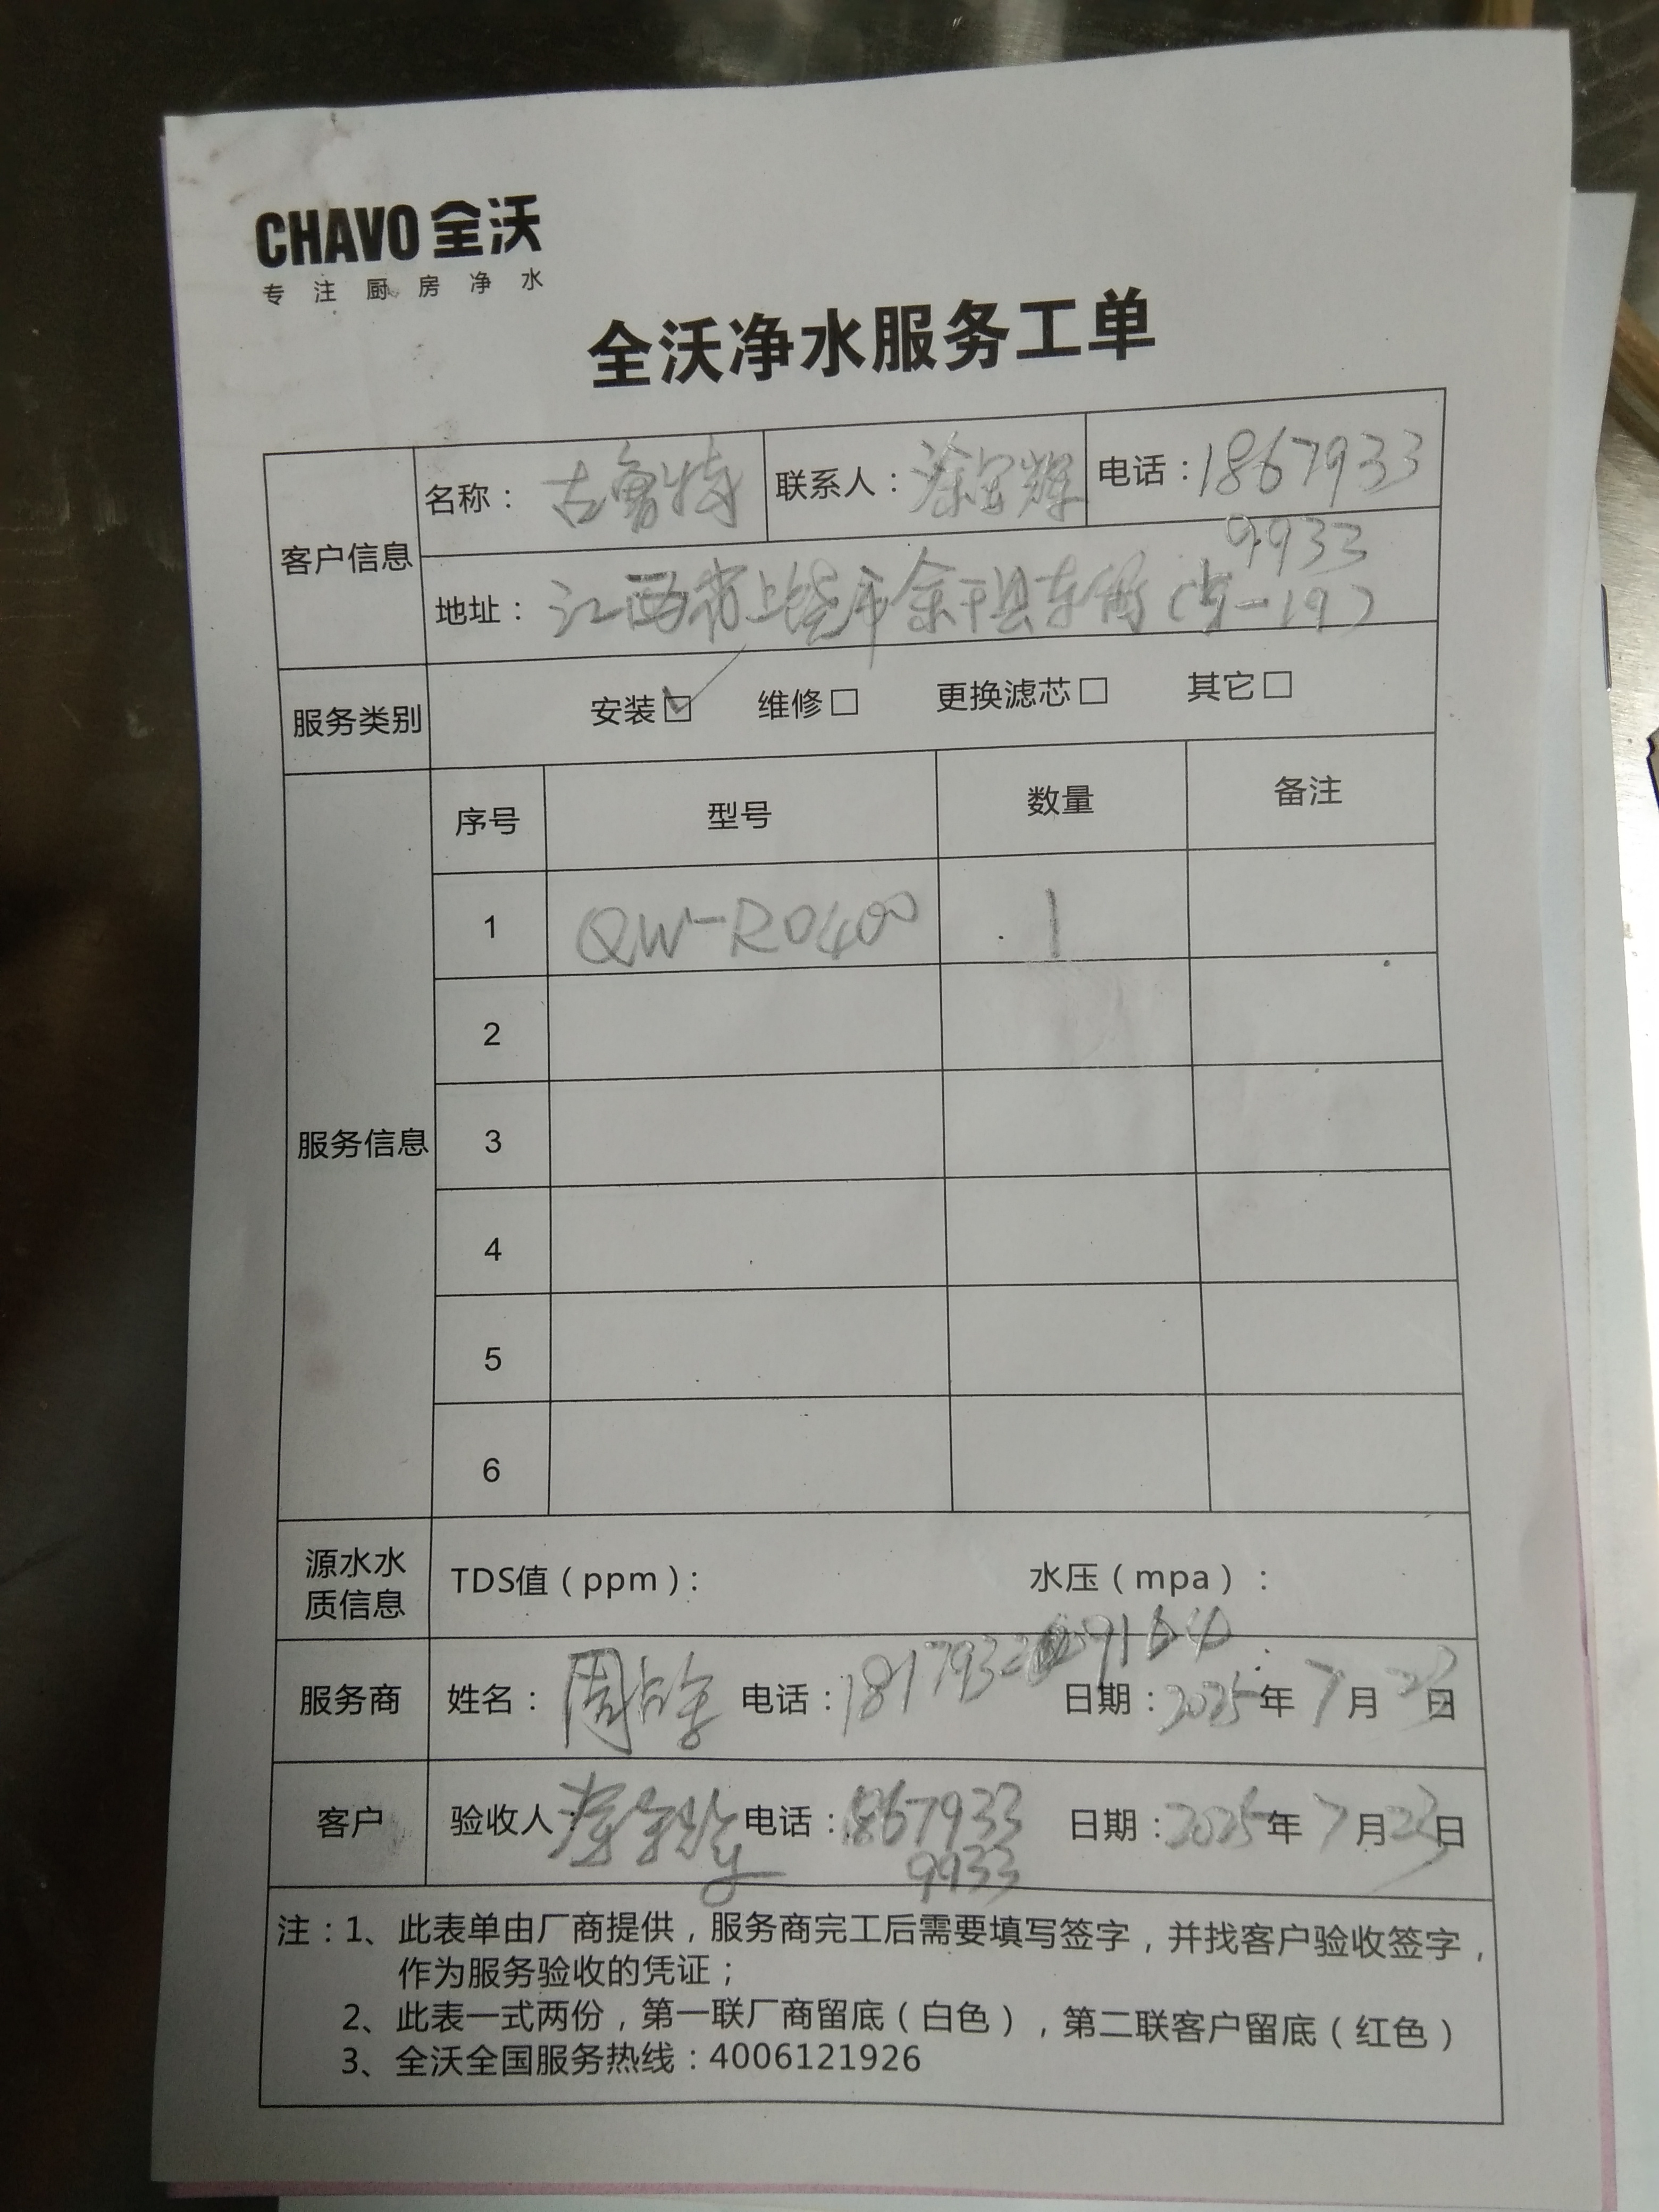 CHAVO 全沃
专注厨房净水
全沃净水服务工单
客户信息
名称：古鲁特 联系人：涂宝辉 电话：1867933
9933
地址：江西省上饶市余干县东街（古-19）
服务类别 安装☑ 维修□ 更换滤芯□ 其它□
服务信息
序号 型号 数量 备注
1 QW-RO400 1
2
3
4
5
6
源水水质信息 TDS值（ppm）： 水压（mpa）：
服务商 姓名：周 电话：181793 9164 日期：2025年7月23日
客户 验收人： 电话：1867933 日期：2025年7月23日
9933
注：1、此表单由厂商提供，服务商完工后需要填写签字，并找客户验收签字，
作为服务验收的凭证；
2、此表一式两份，第一联厂商留底（白色），第二联客户留底（红色）
3、全沃全国服务热线：4006121926